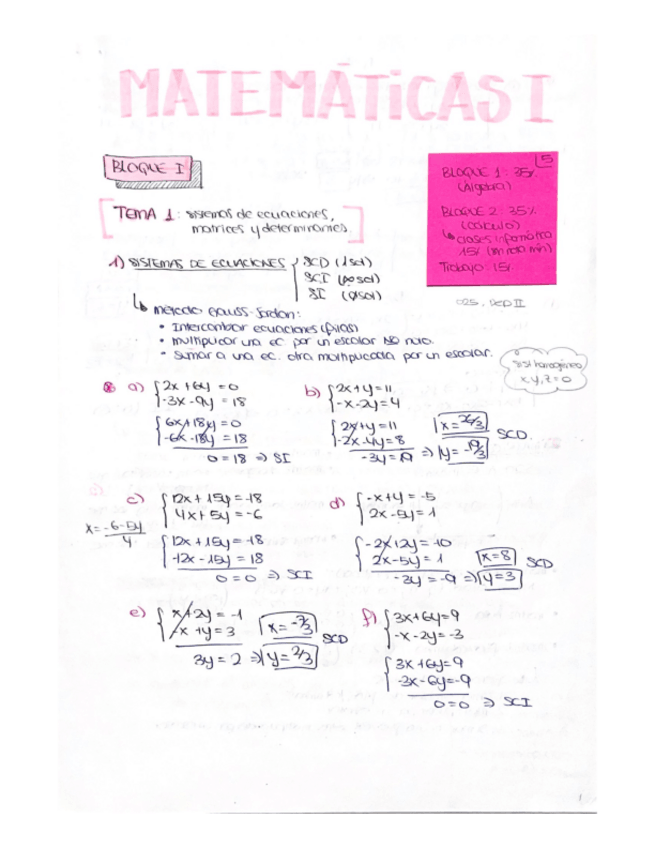 MATEMÁTICAS I
BLOQUE I
5
BLOQUE 1: 35%
(Álgebra)
BLOQUE 2: 35%
(cálculo)
↳ clases informática
15% (sin nota mín)
Trabajo: 15%
TEMA 1: sistemas de ecuaciones,
matrices y determinantes.
1) SISTEMAS DE ECUACIONES
SCD (1 sol)
SCI (∞ sol)
SI (∅ sol)
025, DCD II
↳ método Gauss-Jordan:
• Intercambiar ecuaciones (filas)
• multiplicar una ec por un escalar NO nulo.
• Sumar a una ec. otra multiplicada por un escalar.
sist homogéneo
x,y,z=0
a) 2x + 6y = 0
-3x - 9y = 18
6x + 18y = 0
-6x - 18y = 18
0 = 18 ⇒ SI
b) 2x + y = 11
-x - 2y = 4
2x + y = 11
-2x - 4y = 8
-3y = 19 ⇒ y = -19/3
x = 26/3
SCD
c) 12x + 15y = -18
4x + 5y = -6
x = -6-5y / 4
12x + 15y = -18
-12x - 15y = 18
0 = 0 ⇒ SCI
d) -x + y = -5
2x - 5y = 1
-2x + 2y = -10
2x - 5y = 1
-3y = -9 ⇒ y = 3
x = 8
SCD
e) x + 2y = -1
-x + y = 3
3y = 2 ⇒ y = 2/3
x = -7/3
SCD
f) 3x + 6y = 9
-x - 2y = -3
3x + 6y = 9
-3x - 6y = -9
0 = 0 ⇒ SCI
1